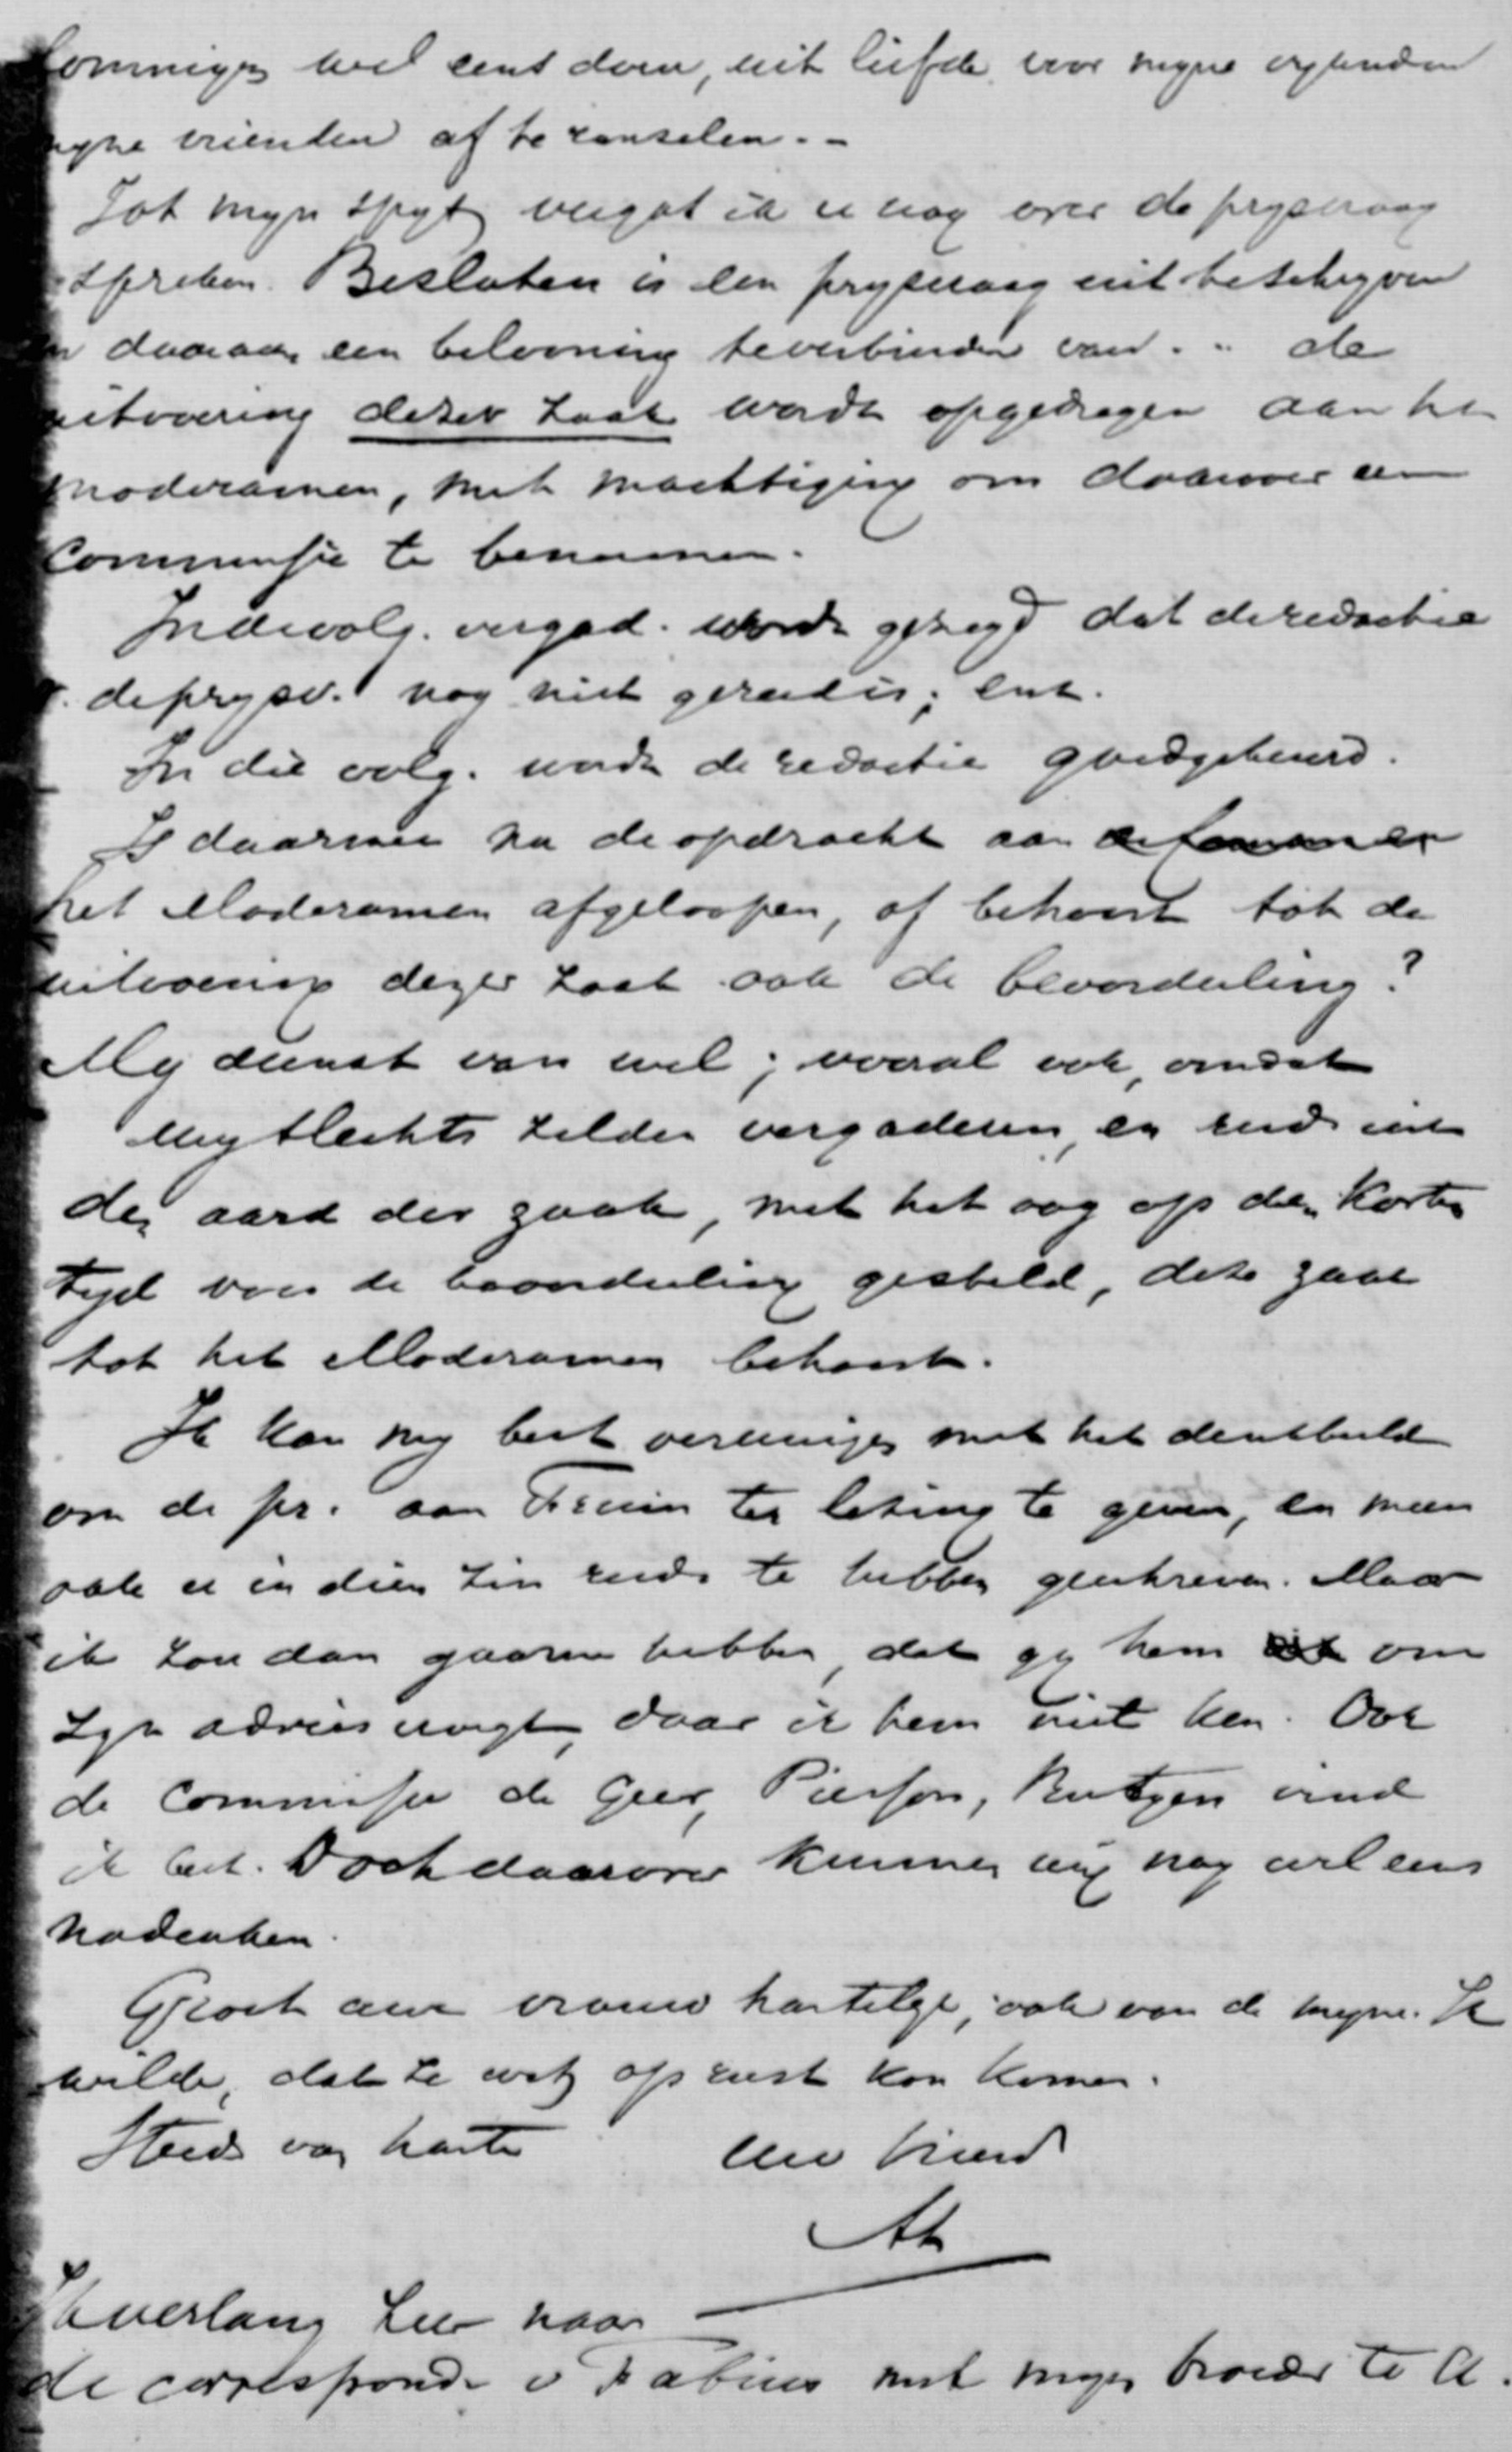 sommigen wel eens doen, uit liefde voor mijne vyanden
myne vrienden af te ranselen. -
Tot myn spyt vergat ik u nog over de prysvraag
spreken. Besloten is een prysvraag uit te schryven
en daaraan een belooning te verbinden van . . de
uitvoering dezer zaak wordt opgedragen aan het
moderamen, met machtiging om daarvoor een
Commissie te benoemen.
In de volg. vergad. wordt gezegd dat de redactie
v. de prysv. nog niet gereed is; enz.
In die volg. wordt de redactie goedgekeurd.
Is daarmee nu de opdracht aan
het Moderamen afgeloopen, of behoort tot de
uitvoering dezer zaak ook de beoordeeling?
My dunkt van wel; vooral ook, omdat
wy slechts zelden vergaderen, en reeds uit
den aard der zaak, met het oog op den korten
tyd voor de beoordeeling gesteld, deze zaak
tot het Moderamen behoort.
Ik kan my best vereenigen met het denkbeeld
om de pr. aan Fruin ter lezing te geven, en meen
ook u in dien zin reeds te hebben geschreven. Maar
ik zou dan gaarne hebben, dat gy hem om
zyn advies vraagt, daar ik hem niet ken. Ook
de Commissie de Geer, Pierson, Rutgers vind
ik best. Doch daarover kunnen wy nog wel eens
nadenken.
Groet uwe vrouw hartelyk, ook van de myne. Ik
wilde, dat ze wat op rust kon komen.
Steeds van harte uw vriend
AK
Ik verlang zeer naar
de correspond. v Fabius met myn broeder te A.